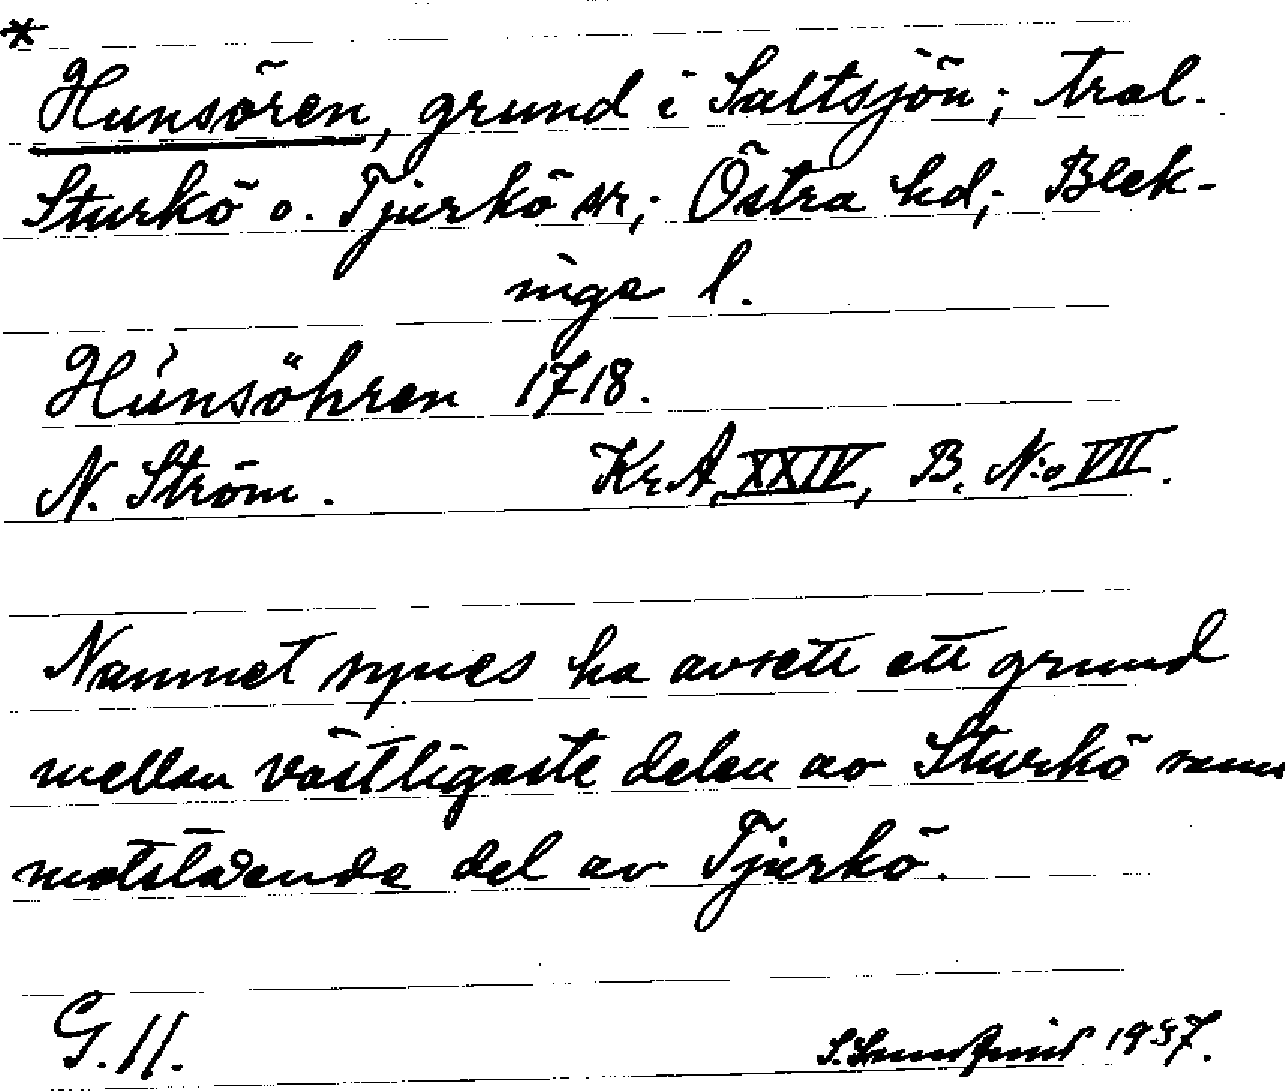 *
Hunsören, grund i Saltsjön; tral.
Sturkö o. Tjurkö snr; Östra hd; Blek-
inge l.
Húnsöhren 1718.
N. Ström. Kr. A. XXIV, B. N:o VII.
Namnet synes ha avsett ett grund
mellan västligaste delen av Sturkö samt
motstående del av Tjurkö.
G. 11. 1937.